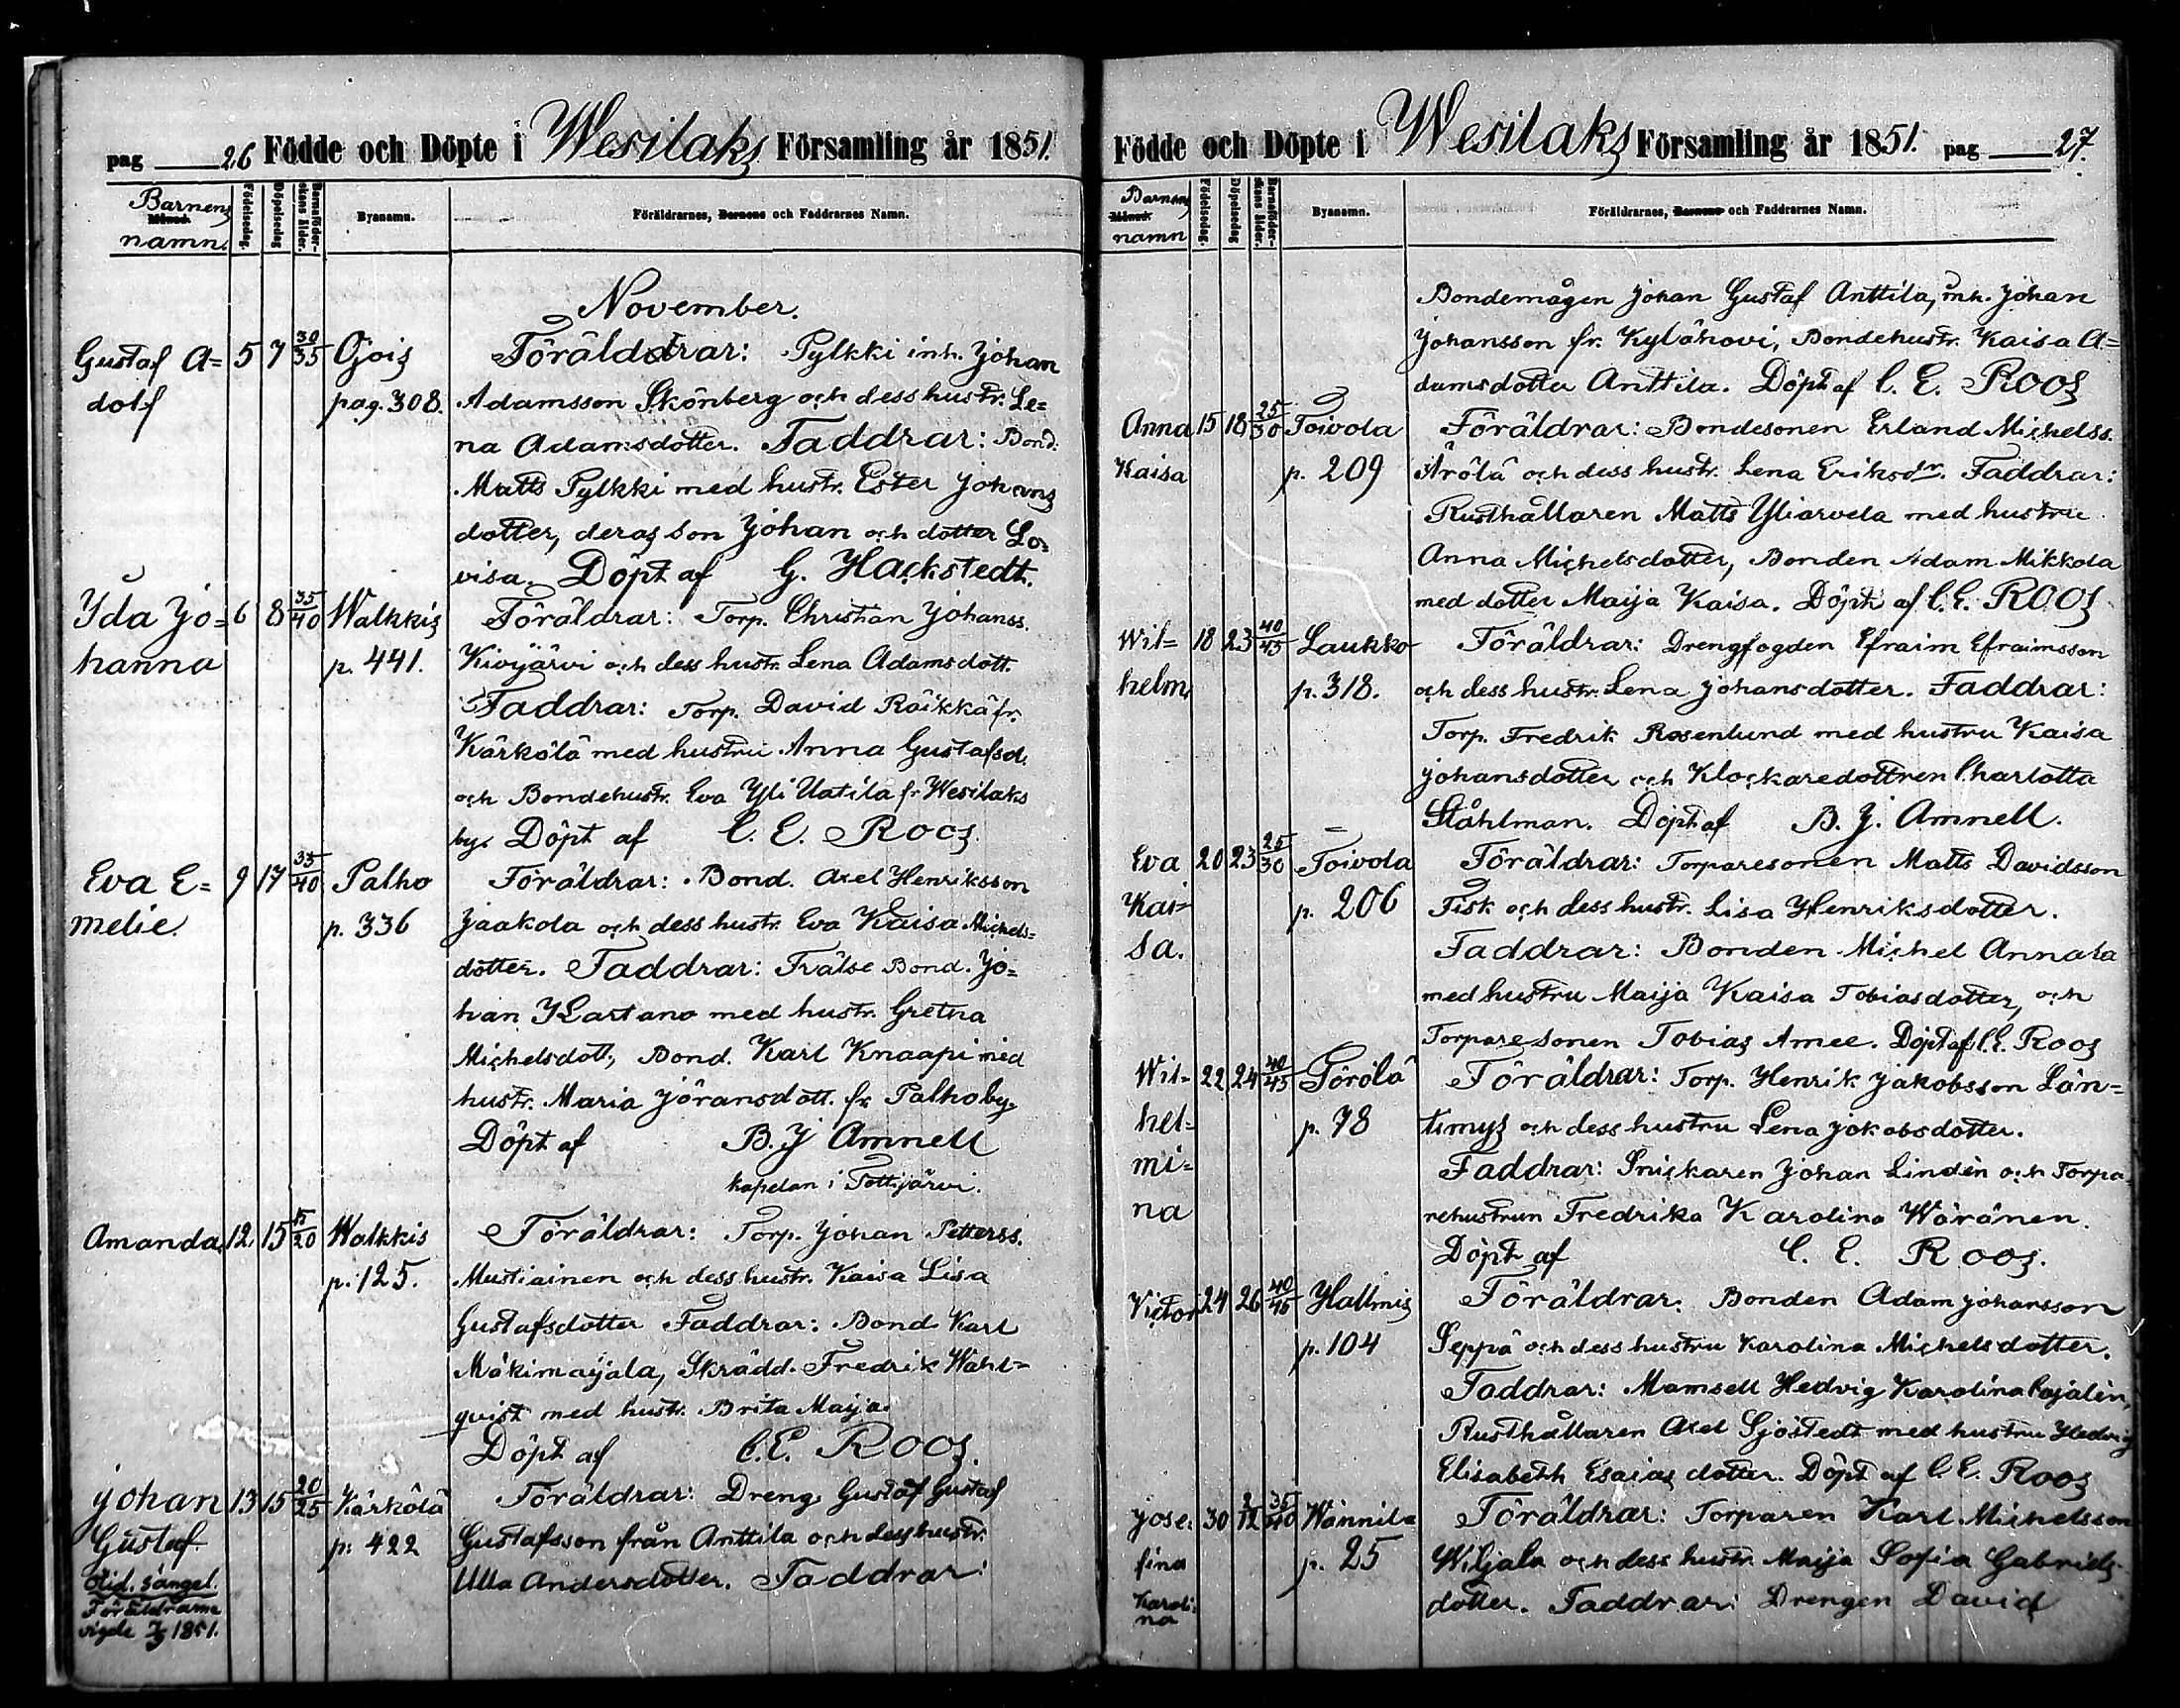 pag 26 Födde och Döpte i Wesilaks Församling år 1851.
Barnens namn. Månad. Födelsedag. Döpelsedag Barnaföderskans ålder. Byanamn. Föräldrarnes, Barnens och Faddrarnes Namn.
November.
Gustaf A= 5 7 30/35 Ojois Föräldrar: Pylkki inh. Johan
dolf pag. 308. Adamsson Skönberg och dess hustr. Le=
na Adamsdotter. Faddrar: Bond.
Matts Pylkki med hustr. Ester Johans
dotter, deras son Johan och dotter Lo=
visa. Döpt af G. Hackstedt.
Yda Jo= 6 8 35/40 Walkkis Föräldrar: Torp. Christian Johanss.
hanna p. 441. Kivijärvi och dess hustr. Lena Adamsdott.
Faddrar: Torp. David Räikkä fr.
Kärkölä med hustru Anna Gustafsd.
och Bondehustr. Eva Yli Uotila fr Wesilaks
by. Döpt af C. E. Roos.
Eva E= 9 17 35/40 Palho Föräldrar: Bond. Axel Henriksson
melie. p. 336 Jaakola och dess hustr. Eva Kaisa Michels=
dotter. Faddrar: Frälse Bond. Jo=
han Kartano med hustr. Gretha
Michelsdott., Bond. Karl Knaapi med
hustr. Maria Jöransdott. fr. Palhoby.
Döpt af B. J Amnell
kapelan i Tottijärvi.
Amanda 12 15 15/20 Walkkis Föräldrar: Torp. Johan Petterss.
p. 125. Mustiainen och dess hustr. Kaisa Lisa
Gustafsdotter Faddrar: Bond Karl
Mäkimaijala, Skrädd. Fredrik Wahl=
qvist med hustr. Brita Maija.
Döpt af C. E. Roos.
Johan 13 15 20/25 Kärkölä Föräldrar: Dreng Gustaf Gustaf
Gustaf p. 422 Gustafsson från Anttila och dess hustr.
Ulla Andersdotter. Faddrar:
Föräldrarne
vigde 1851.
Födde och Döpte i Wesilaks Församling år 1851. pag 27.
Barnens namn Månad. Födelsedag. Döpelsedag Barnaföderskans ålder. Byanamn. Föräldrarnes, Barnens och Faddrarnes Namn.
Bondemågen Johan Gustaf Anttila, inh. Johan
Johansson fr. Kylähovi, Bondehustr. Kaisa A=
damsdotter Anttila. Döpt af C. E. Roos
Anna 15 18 25/30 Toivola Föräldrar: Bondesonen Erland Michelss.
Kaisa p. 209 Arölä och dess hustr. Lena Eriksdr. Faddrar:
Rusthållaren Matts Yliarvela med hustru
Anna Michelsdotter, Bonden Adam Mikkola
med dotter Maija Kaisa. Döpt af C. E. Roos
Wil= 18 23 40/45 Laukko Föräldrar: Drengfogden Efraim Efraimsson
helm p. 318. och dess hustr. Lena Johansdotter. Faddrar:
Torp. Fredrik Rosenlund med hustru Kaisa
Johansdotter och Klockaredottren Charlotta
Ståhlman. Döpt af B. J. Amnell.
Eva 20 23 25/30 Toivola Föräldrar: Torparesonen Matts Davidsson
Kai= p. 206 Fisk och dess hustr. Lisa Henriksdotter.
sa. Faddrar: Bonden Michel Annala
med hustru Maija Kaisa Tobiasdotter, och
Torparesonen Tobias Amee. Döpt af C. E. Roos
Wil= 22 24 40/45 Törölä Föräldrar: Torp. Henrik Jakobsson Län=
hel= p. 78 tsmys och dess hustru Lena Jakobsdotter.
mi= Faddrar: Snickaren Johan Lindén och Torpa=
na rehustrun Fredrika Karolina Wäränen.
Döpt af C. E. Roos.
Victor 24 26 40/45 Hallmis Föräldrar. Bonden Adam Johansson
p. 104 Seppä och dess hustru Karolina Michelsdotter.
Faddrar: Mamsell Hedvig Karolina Cajalén,
Rusthållaren Axel Sjöstedt med hustru Hedvig
Elisabeth Esaias dotter. Döpt af C. E. Roos
Jose= 30 2/12 35/40 Wännilä Föräldrar: Torparen Karl Michelsson
fina p. 25 Wiljala och dess hustr. Maija Sofia Gabriels=
Karoli= dotter. Faddrar: Drengen David
na